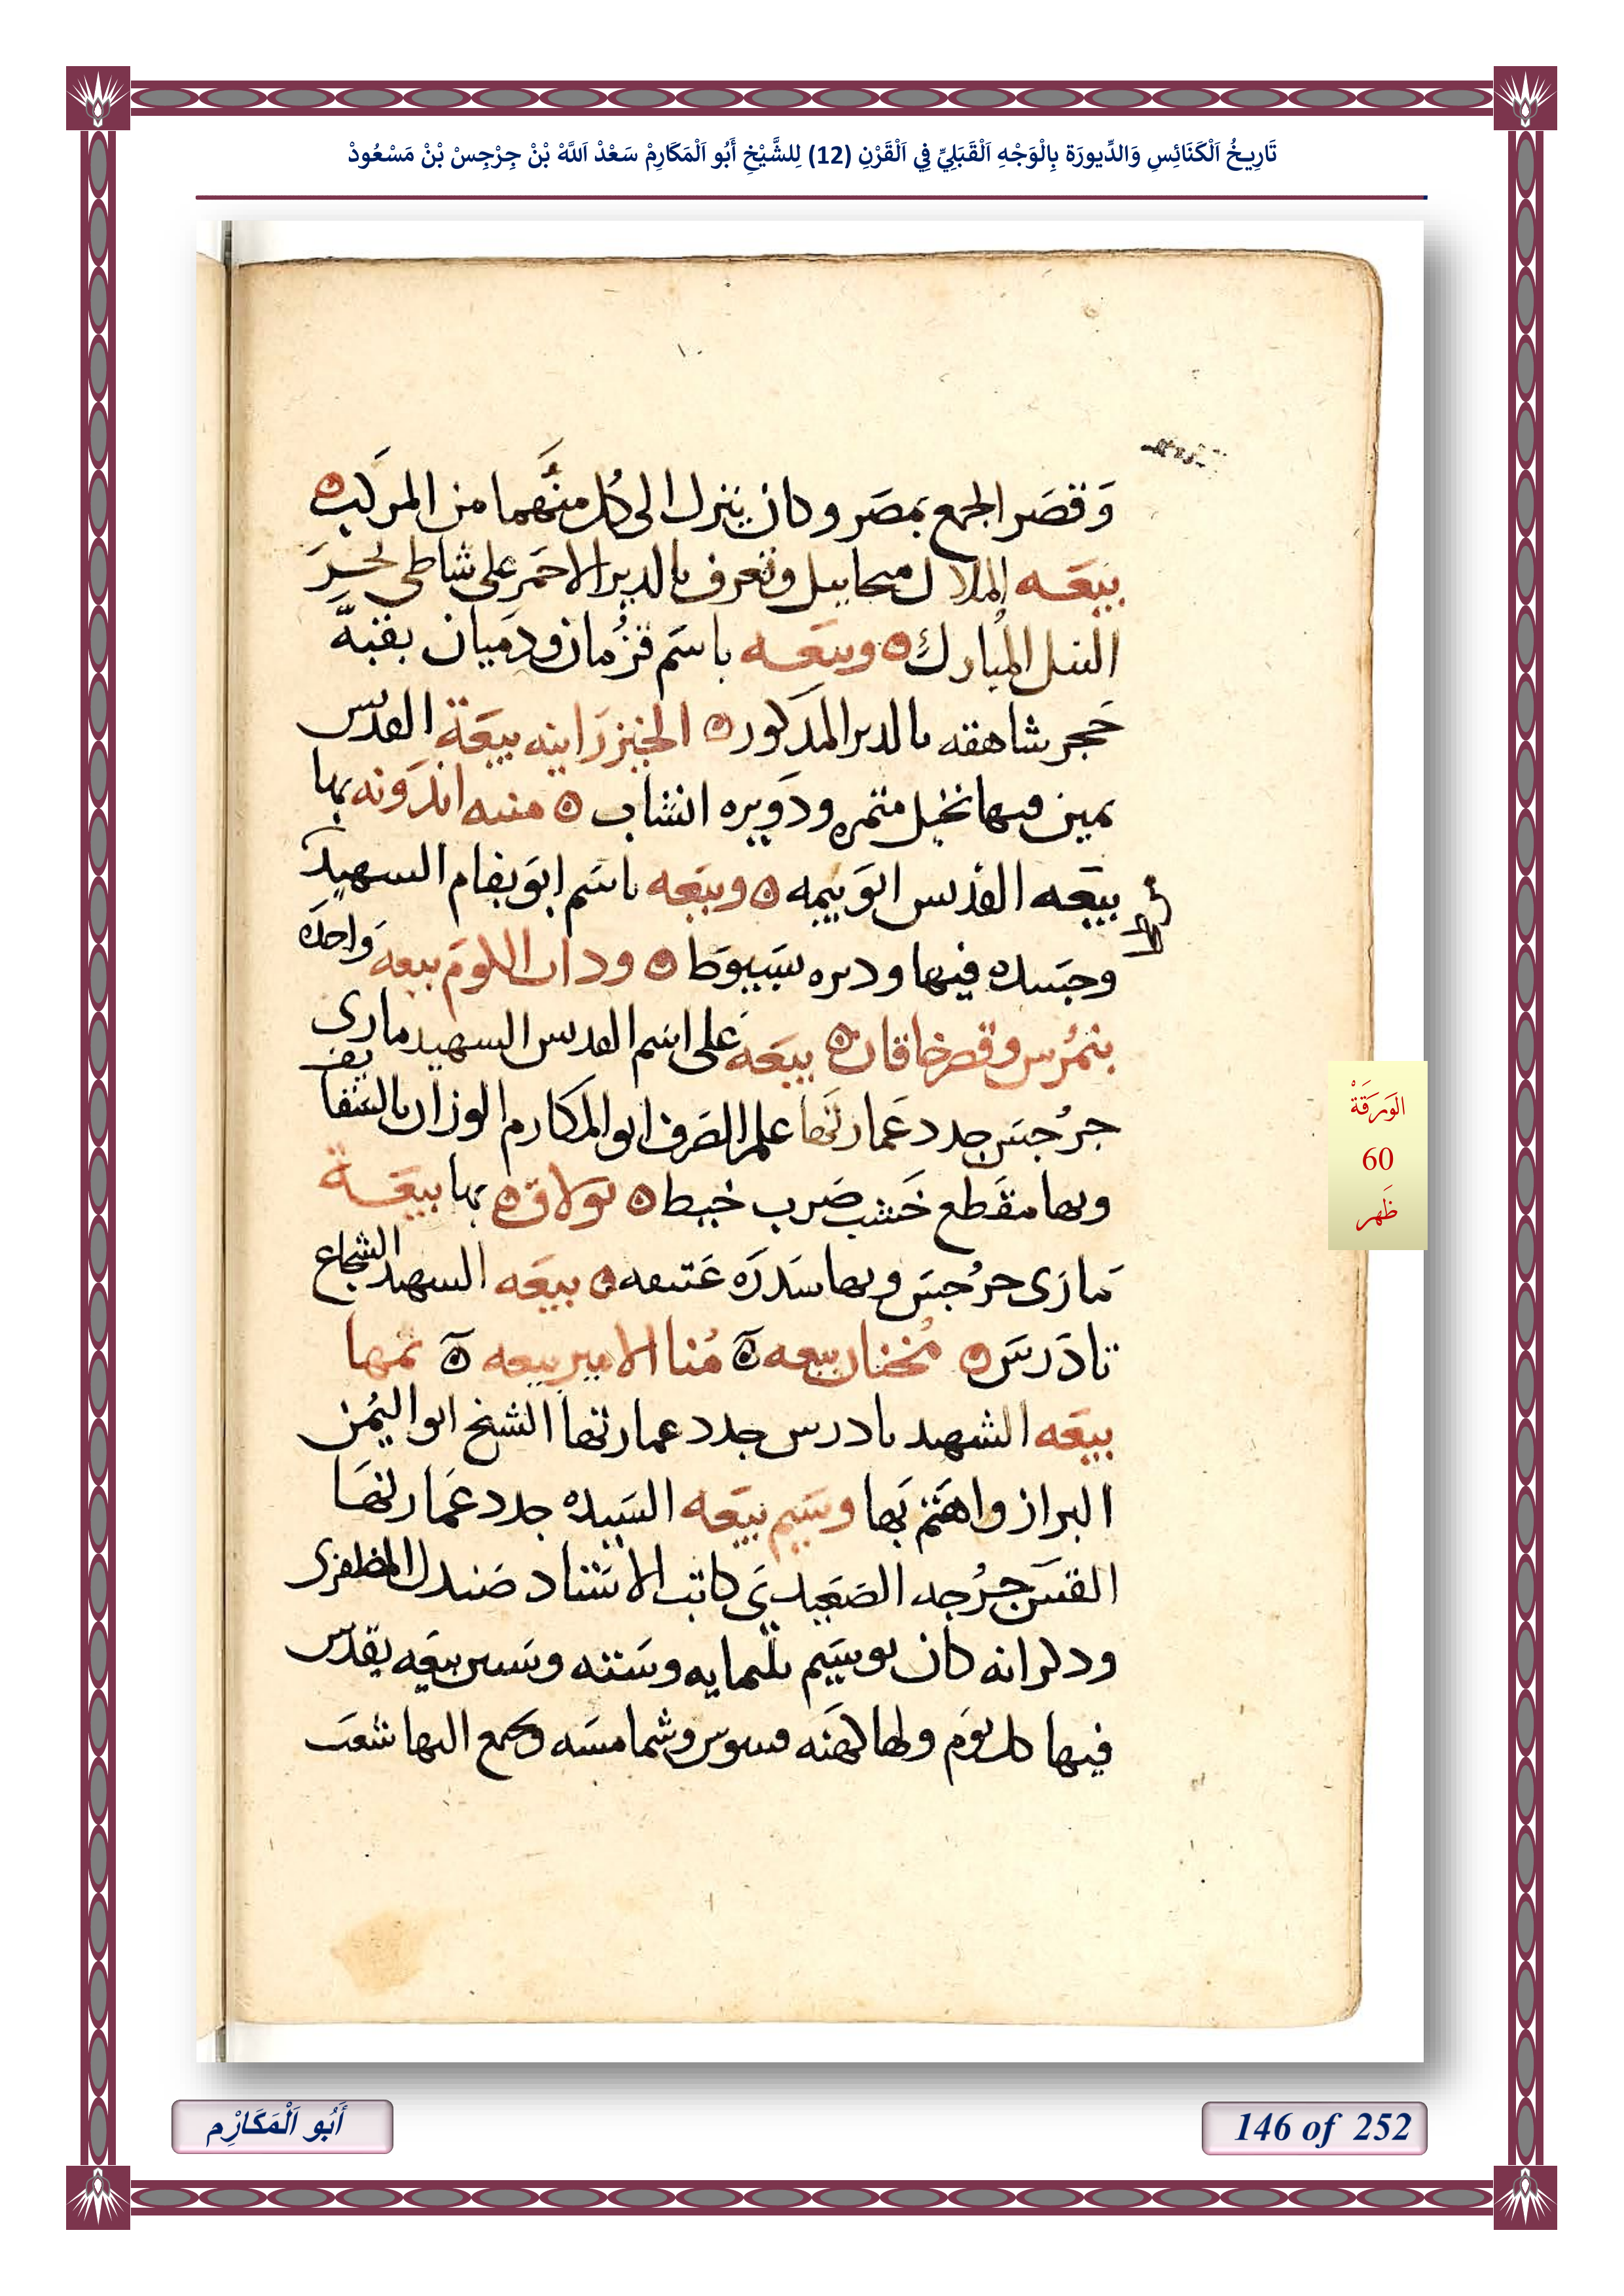 تَارِيخُ اَلْكَنَائِسِ وَالدِّيورَة بِالْوَجْهِ اَلْقَبَلِيِّ فِي اَلْقَرْنِ (12) لِلشَّيْخِ أَبُو اَلْمَكَارِمْ سَعْدْ اَللَّهْ بْنْ جِرْجِسْ بْنْ مَسْعُودْ
وَقصَر الجمع بمصَر وكان ينزل الى كُل منهما من المركب
بيعَه الملاك ميخاييل وتعرف بالدير الاحمَر على شاطى بحر
النيل المبارك وبيعَه باسَم قزمان ودميان بقبة
حَجر شاهقه بالدير المدكور الخيزرَانيه بيعَة القديس
يمين فيها نخيل مثمره ودَويره انشاب منيه اندَونه بها
بيعَه القديس ابو بيمه وبيعَه باسَم ابو بفام الشهيد
وجسَده فيها وديره بسَيوط ودات الكوم بيعه وَاحده
بنمرس وقصر خاقان بيعَه على اسَم القديس الشهيد مارى
جرُجس جدد عَمارتَها علم الصَرف ابو المكارم الوزان بالثغا يف
وبها مقطع خَشب ضَرب خيط بولاق بها بيعَة
مَارَى جرُجسَ وبها سَدرَه عَتيقه بيعَه الشهيد الشجاع
تادَرسَ مُخنان بيعه مُنا الامير بيعه تمها
بيعَه الشهيد تادرس جدد عمارتها الشيخ ابو اليُمن
البزاز واهَتم بَها وسَيم بيعَه السَيده جدد عَمارتهَا
القسَ جرُجه الصَعيدى كاتب الاستَاد صَندل المظفرى
ودكر انه كان بوسَيم تلتمايه وسَتنه وسَتين بيعَه يقدس
فيها كل يوَم ولها كهَنه قسوس وشمامسَه ويجمع اليها شعَب
الوَرَقَةْ
60
ظَهر
أَبُو اَلْمَكَارْم
146 of 252